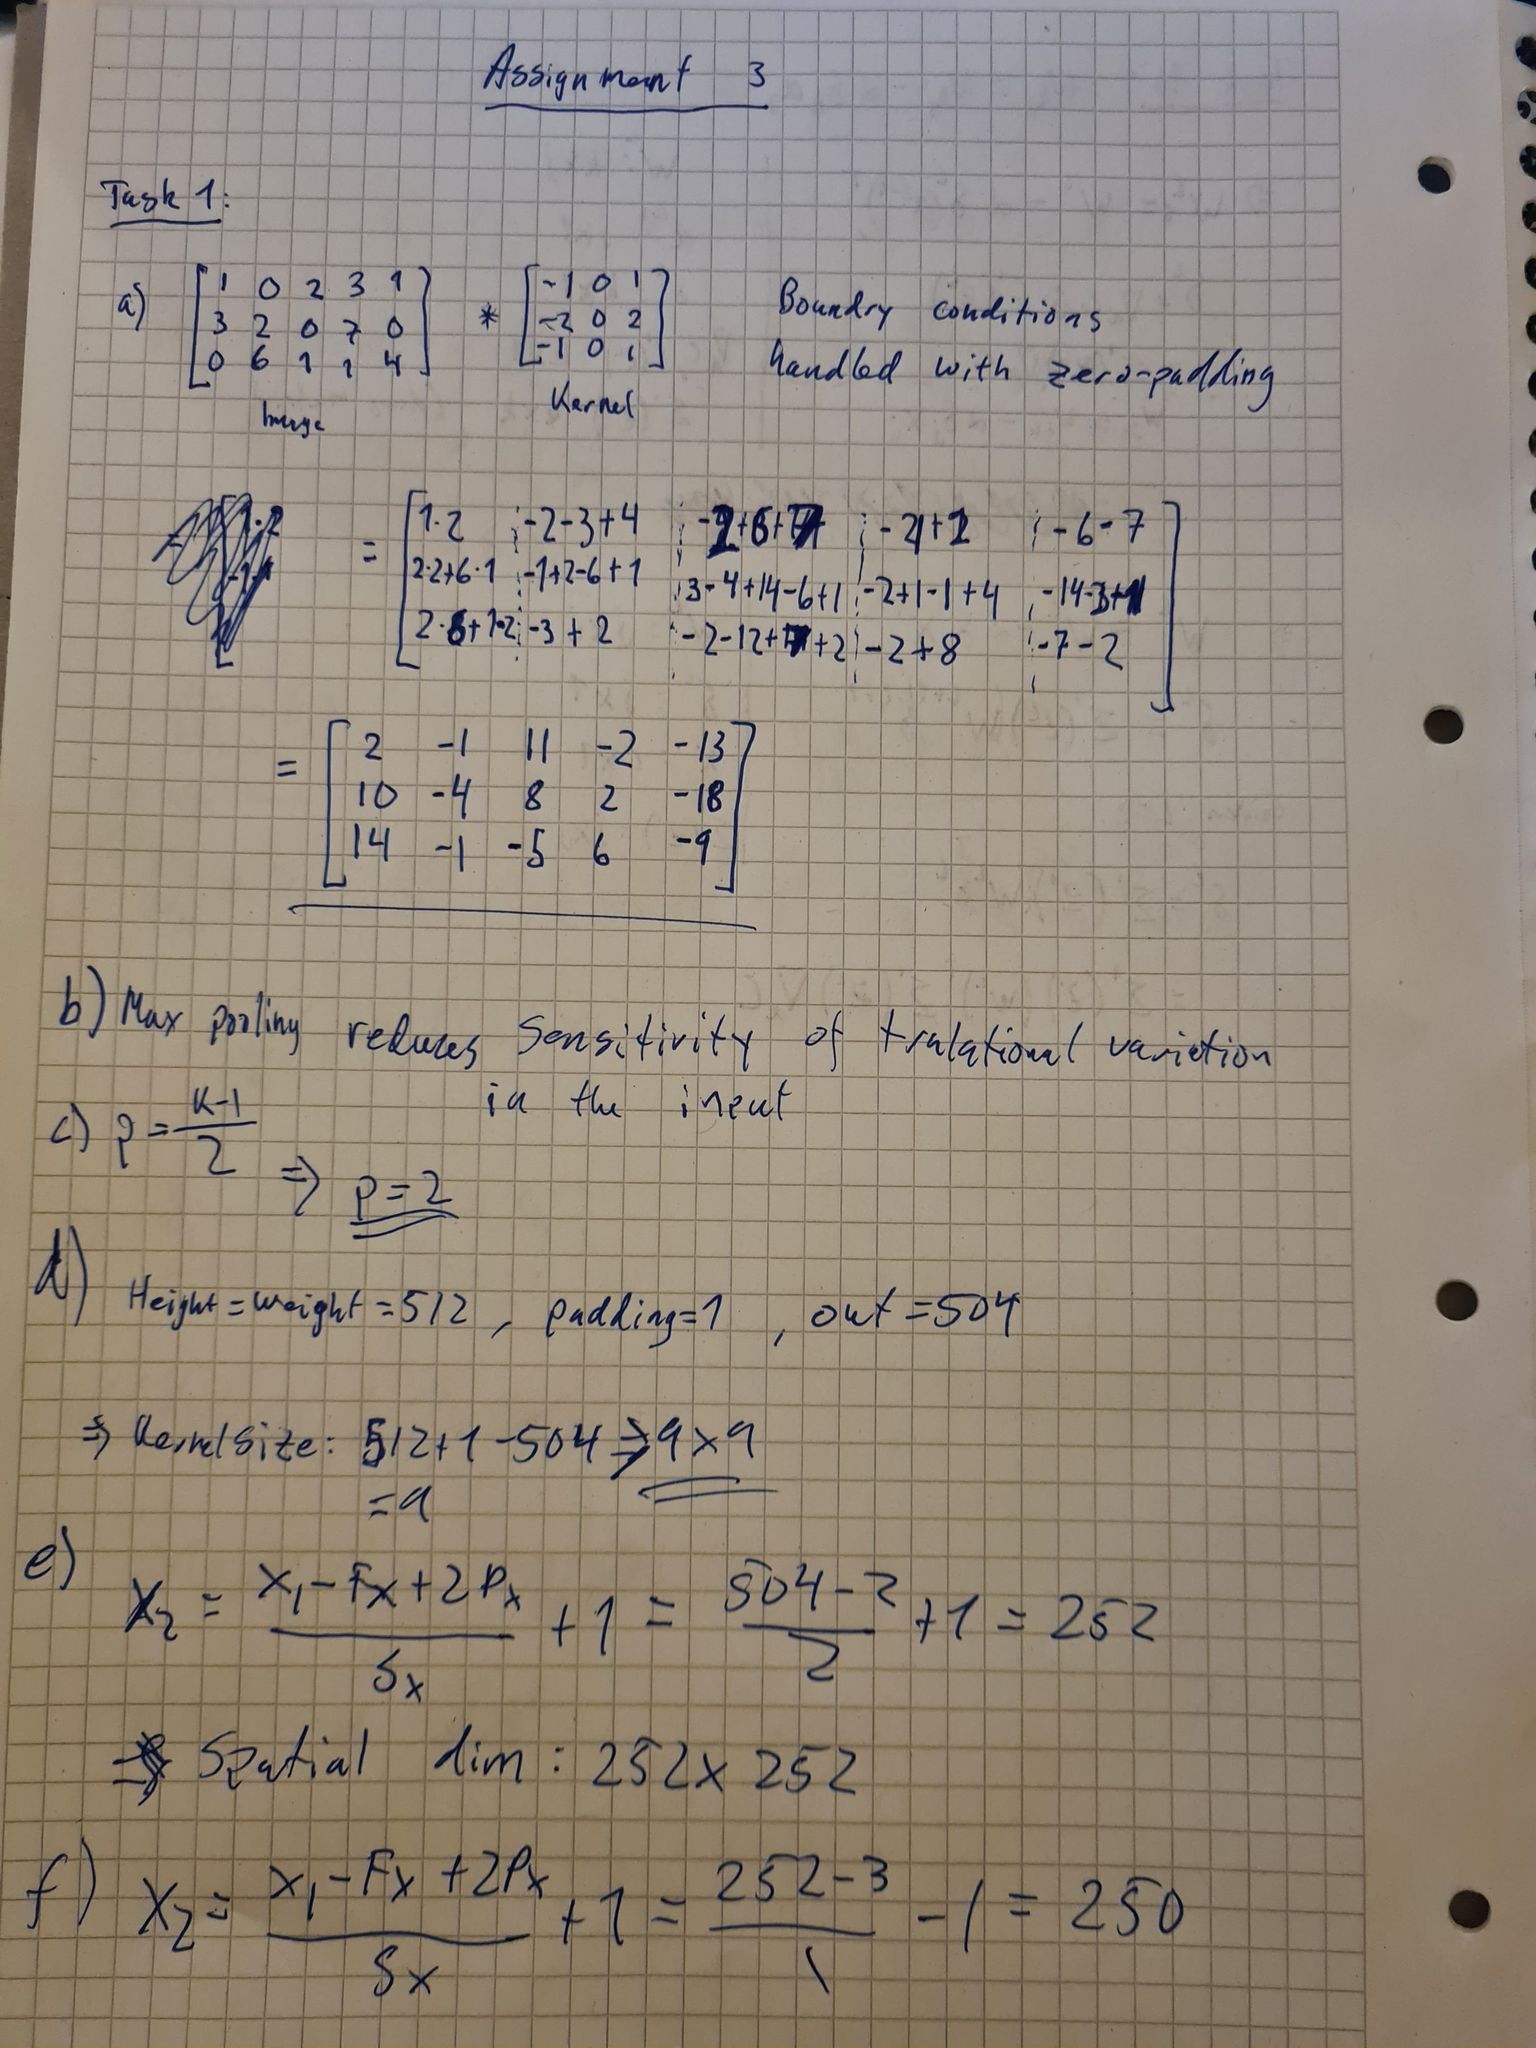 Assignment 3
Task 1:
a) [1 0 2 3 1 * [-1 0 1 Boundry conditions
3 2 0 7 0 -2 0 2 handled with zero-padding
0 6 1 1 4] -1 0 1]
Image Kernel
= [1·2 -2-3+4 +6+ -2 +2 -6-7
2·2+6·1 -1+2-6+1 3-4+14-6+1 -2+1-1+4 -14-3+
2·6+1·2 -3+2 -2-12+ +2 -2+8 -7-2]
= [2 -1 11 -2 -13
10 -4 8 2 -18
14 -1 -5 6 -9]
b) Max pooling reduces sensitivity of tralational variation
in the input
c) P = K-1 / 2
=> P=2
d) Height = weight = 512, padding=1, out=504
=> Kernelsize: 512+1-504 => 9x9
= 9
e) X2 = X1-Fx+2Px / Sx + 1 = 504-2 / 2 + 1 = 252
=> Spatial dim: 252x252
f) X2 = X1-Fx+2Px / Sx + 1 = 252-3 / 1 - 1 = 250